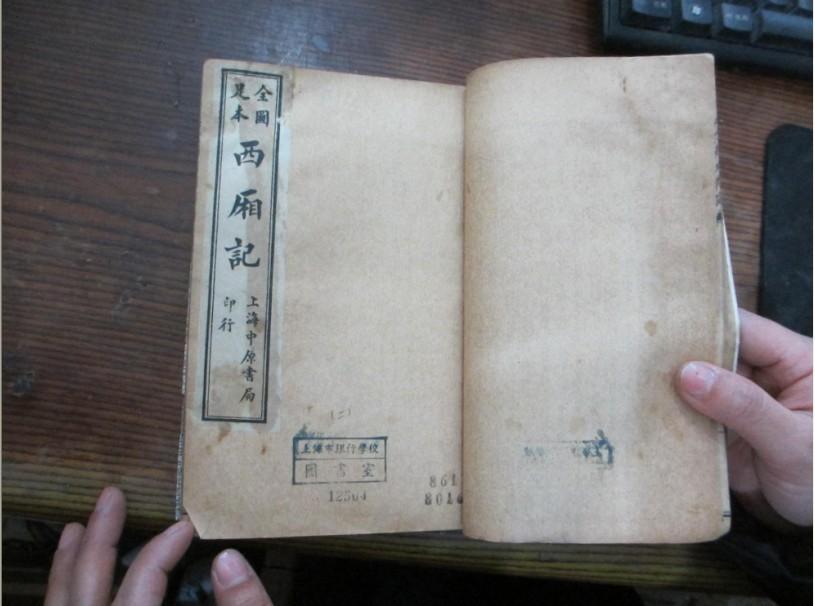 全圖
足本
西廂記
上海中原書局
印行
(二)
上海市銀行學校
圖書室
12504
861